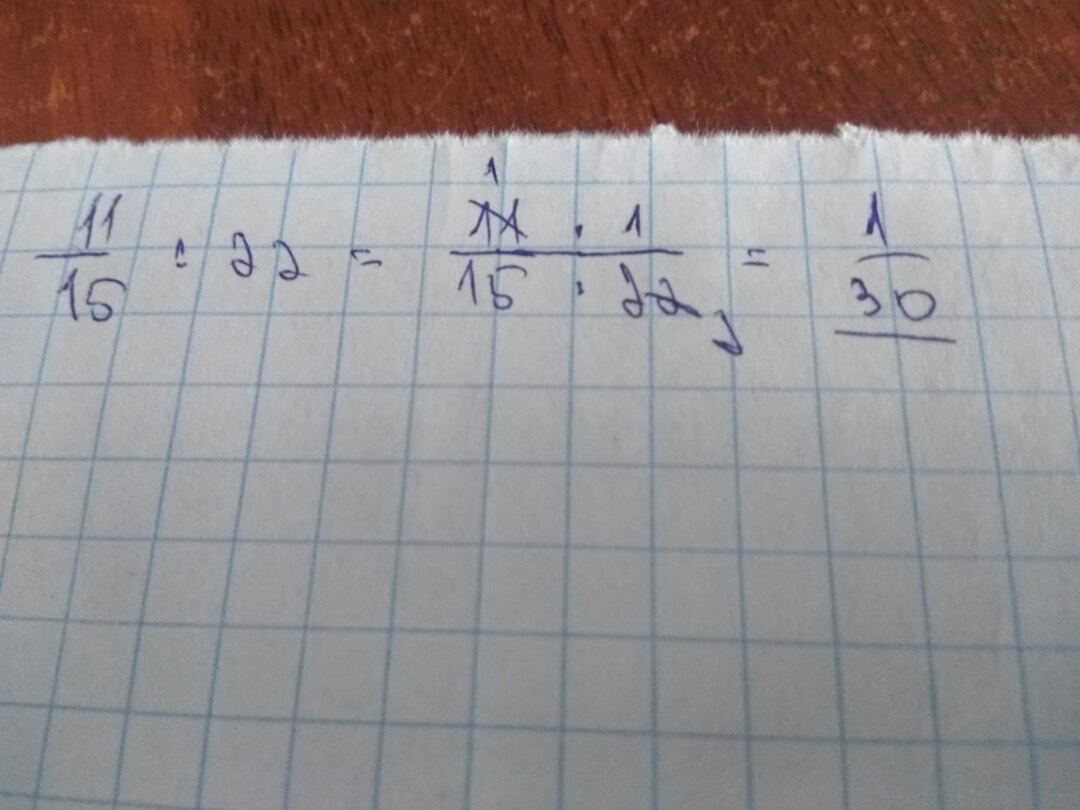 11/15 : 22 = 11 1 · 1 / 15 · 22 2 = 1/30